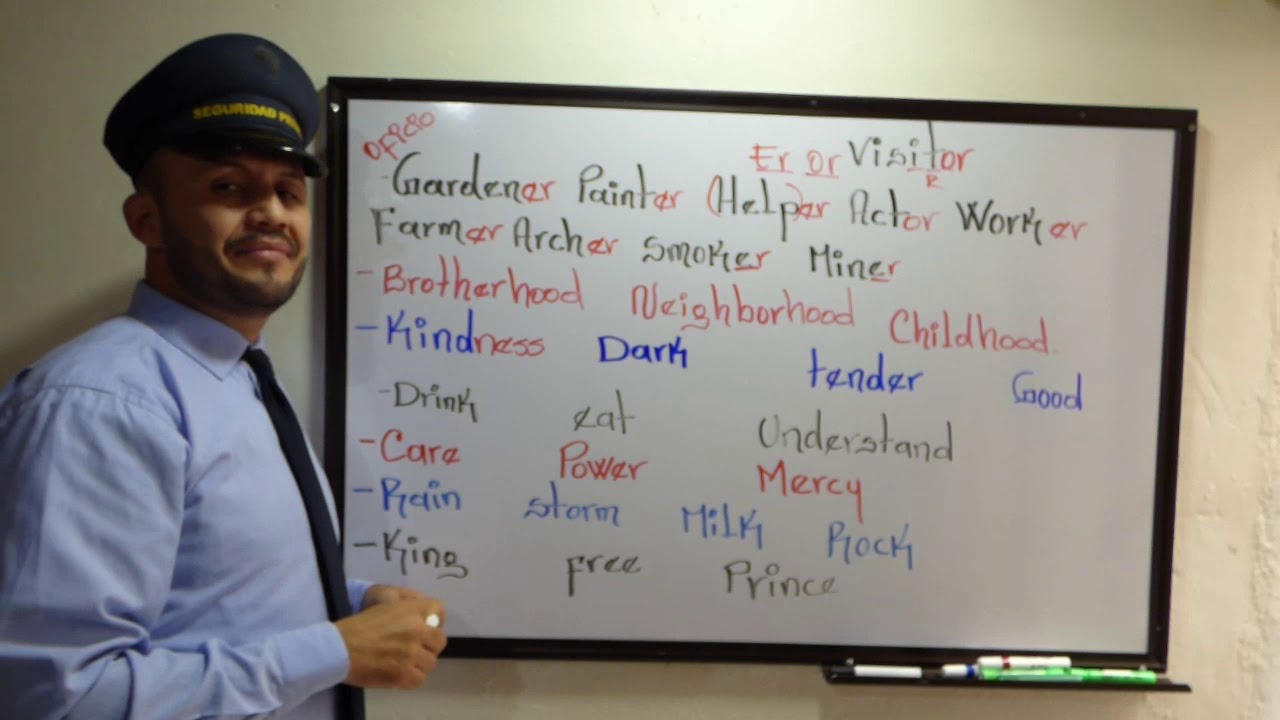 SEGURIDAD
OFICIO
Er or Visitor
R
Gardener Painter (Helper Actor Worker
Farmer Archer smoker Miner
- Brotherhood Neighborhood Childhood
- Kindness Dark tender Good
- Drink eat Understand
- Care Power Mercy
- Rain storm Milk Rock
- King free Prince